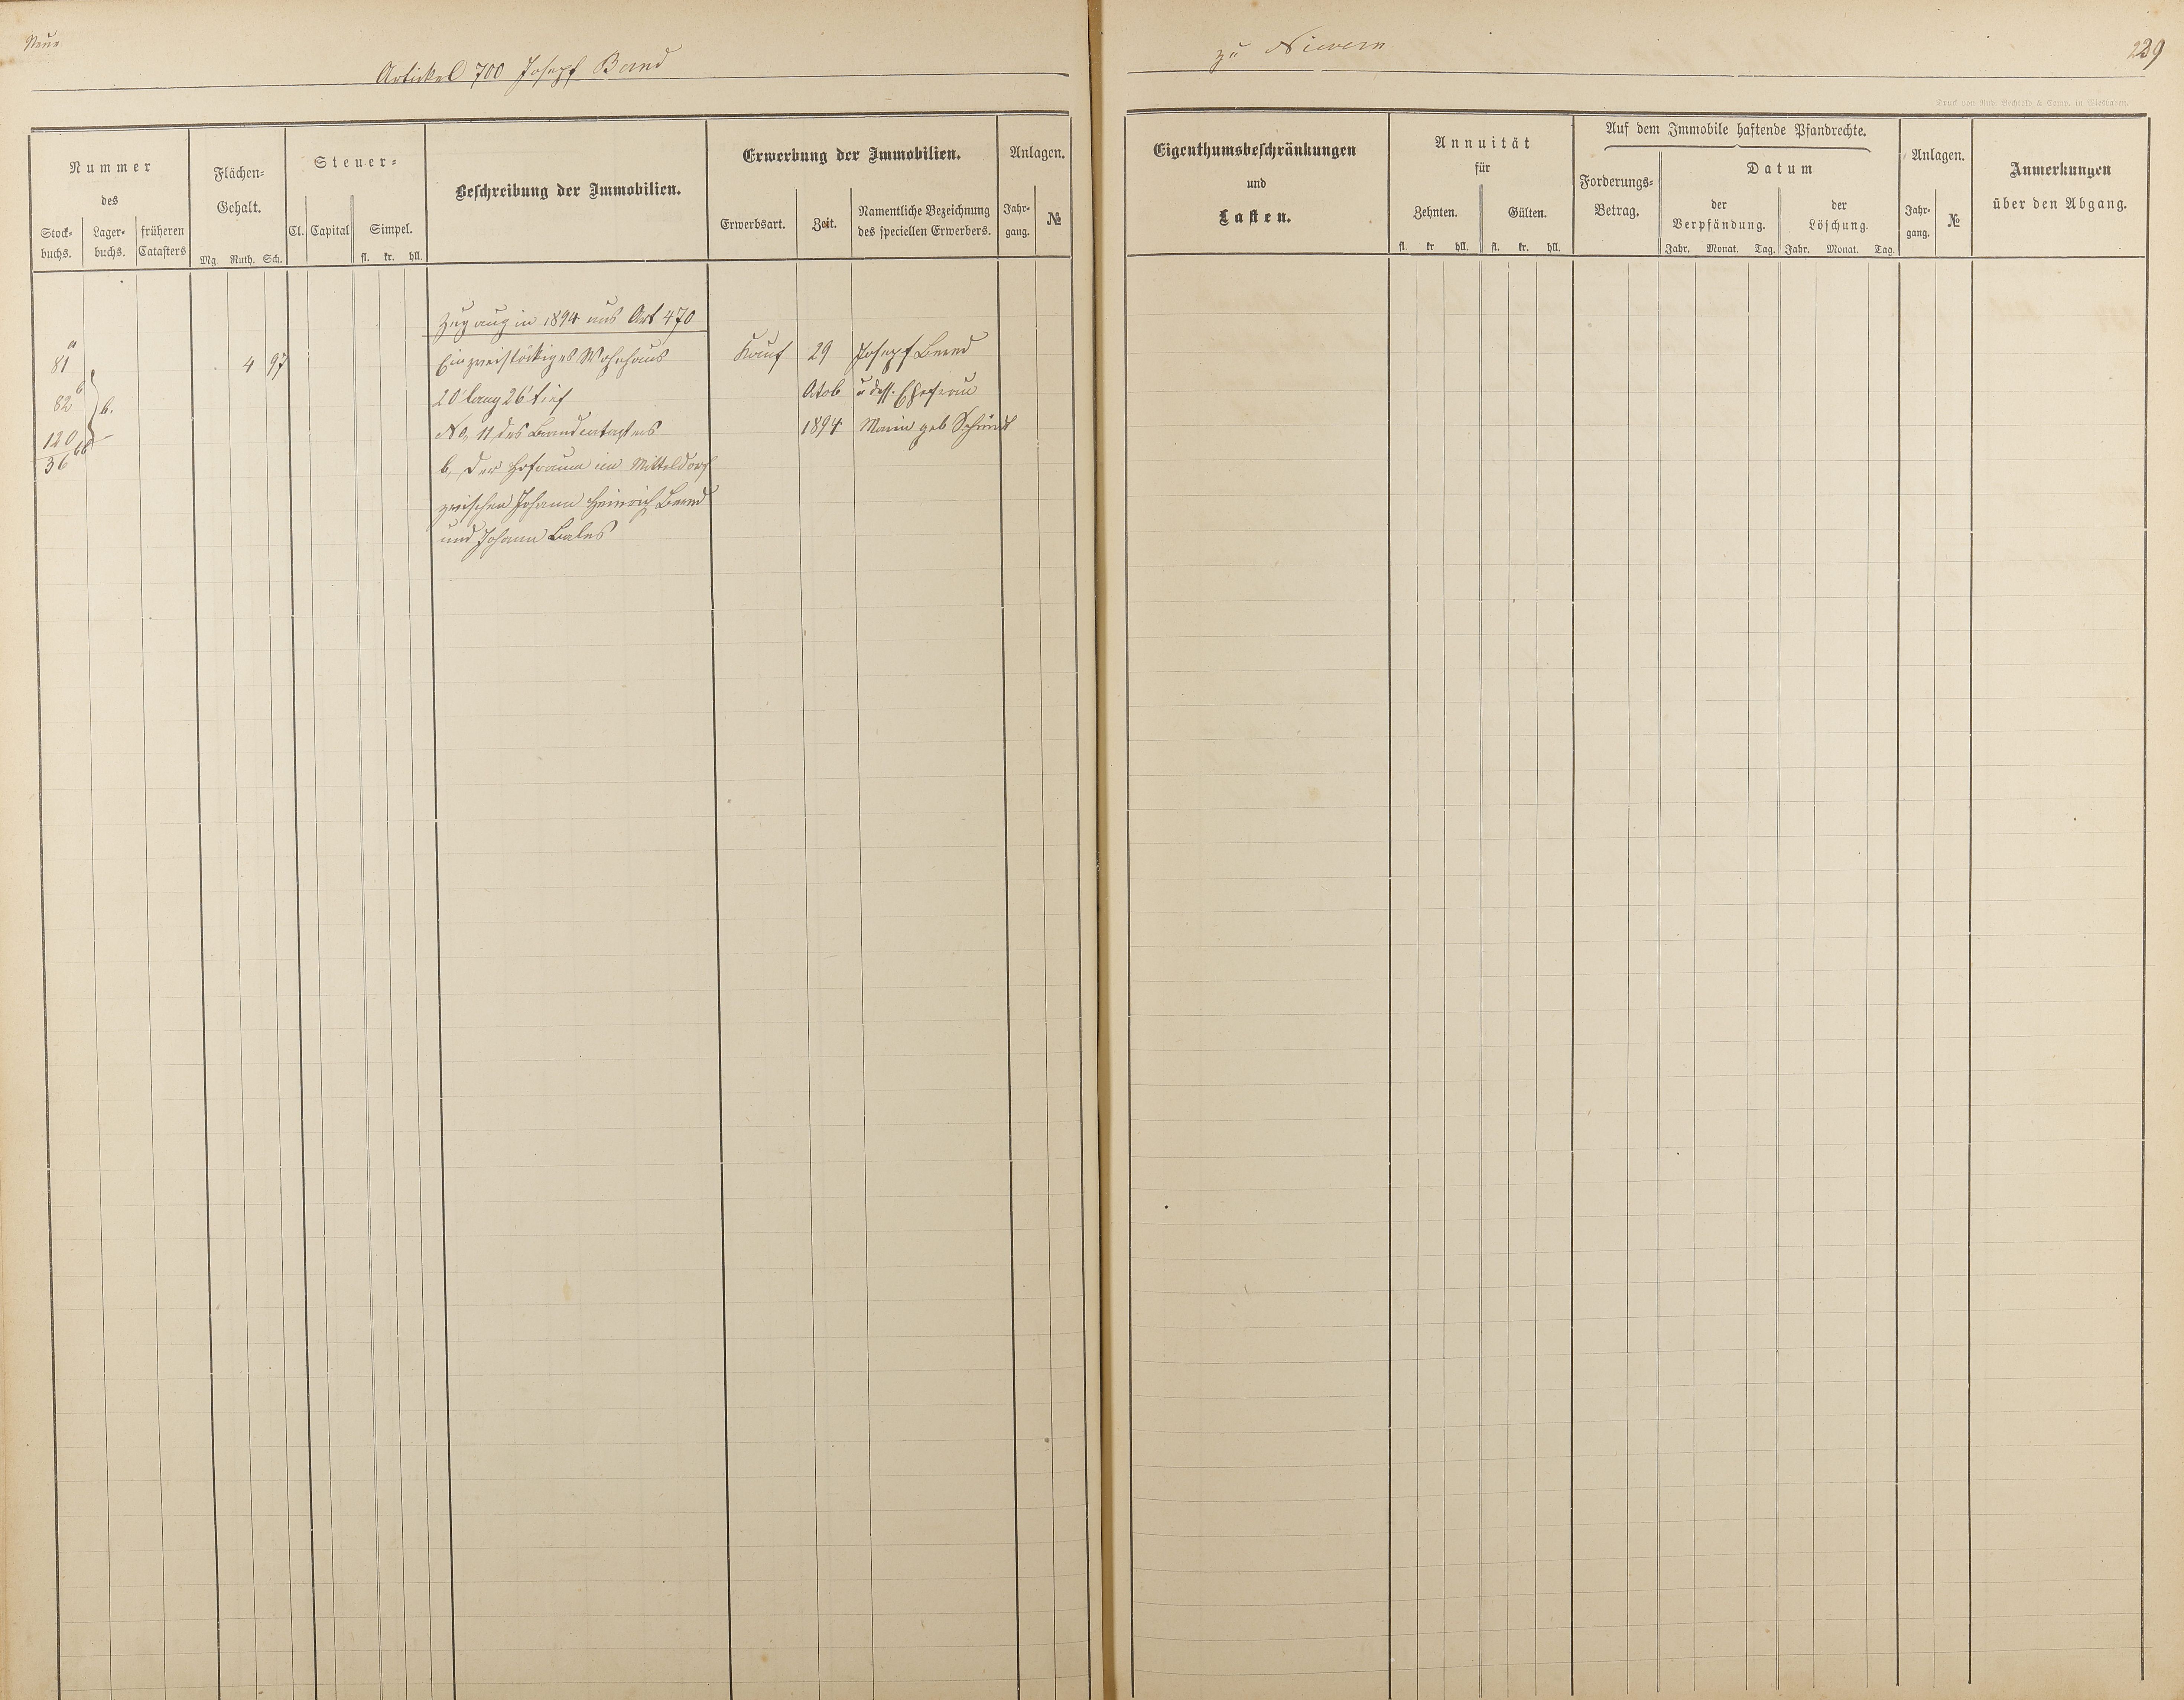 Neue
Artickel 700 Josepf Bernd
zu Nievern
239
Druck von Rud. Bechtold & Comp. in Wiesbaden.
Nummer
des
Stock-
buchs.
Lager-
buchs.
früheren
Catasters
Flächen-
Gehalt.
Mg. Ruth. Sch.
Steuer-
Cl. Capital Simpel.
fl. kr. hll.
Beschreibung der Immobilien.
Erwerbung der Immobilien.
Erwerbsart. Zeit.
Namentliche Bezeichnung
des speciellen Erwerbers.
Anlagen.
Jahr-
gang.
№
Eigenthumsbeschränkungen
und
Lasten.
Annuität
für
Zehnten. Gülten.
fl. kr hll. fl. kr. hll.
Auf dem Immobile haftende Pfandrechte.
Forderungs-
Betrag.
Datum
der
Verpfändung.
der
Löschung.
Jahr. Monat. Tag. Jahr. Monat. Tag.
Anlagen.
Jahr-
gang.
№
Anmerkungen
über den Abgang.
Zugang in 1894 aus Art 470
81 a 4 97 Ein zweistöckiges Wohnhaus Kauf 29 Josepf Bernd
82 b b. 20' lang 26' tief Octob u dess. Ehefrau
120 No, 11 des Brandcatasters 1894 Maria geb
36
b, Der Hofraum im Mitteldorf
zwischen Johann Heinrich Bernd
und Johann Bales